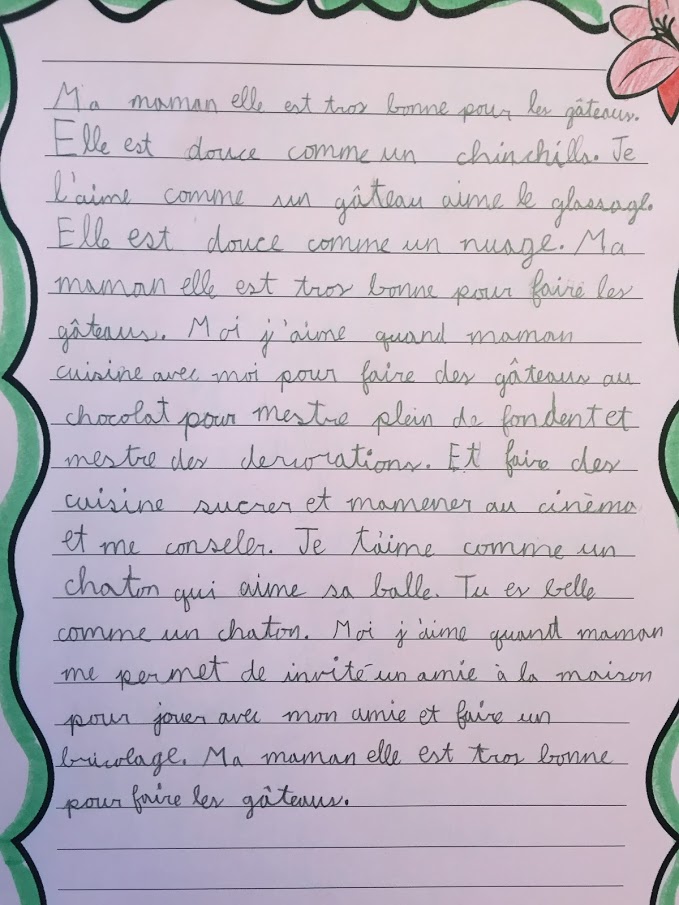 Ma maman elle est tros bonne pour les gâteaus.
Elle est douce comme un chinchills. Je
l'aime comme un gâteau aime le glassage.
Elle est douce comme un nuage. Ma
maman elle est tros bonne pour faire les
gâteaus. Moi j'aime quand maman
cuisine avec moi pour faire des gâteaus au
chocolat pour mestre plein de fondent et
mestre des decorations. Et faire des
cuisine sucrer et mamener au cinèma
et me conseler. Je t'aime comme un
chaton qui aime sa balle. Tu es belle
comme un chaton. Moi j'aime quand maman
me permet de invité un amie à la maison
pour jouer avec mon amie et faire un
bricolage. Ma maman elle est tros bonne
pour faire les gâteaus.